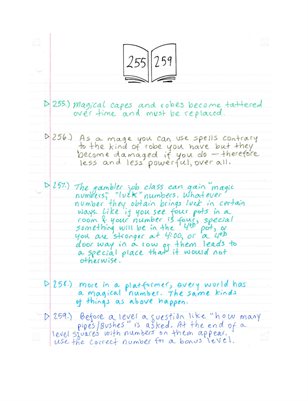 255 259
255.) Magical capes and robes become tattered
over time and must be replaced.
256.) As a mage you can use spells contrary
to the kind of robe you have but they
become damaged if you do — therefore
less and less powerful, over all.
257.) The gambler job class can gain "magic
numbers," "luck" numbers. Whatever
number they obtain brings luck in certain
ways. Like if you see four pots in a
room & your number is four, special
something will be in the 4th pot, or
you are stronger at 4:00, or a 4th
door way in a row of them leads to
a special place that it would not
otherwise.
258.) more in a platformer, every world has
a magical number. The same kinds
of things as above happen.
259.) Before a level a question like "how many
pipes/Bushes" is asked. At the end of a
level squares with numbers on them appear.
Use the correct number for a bonus level.